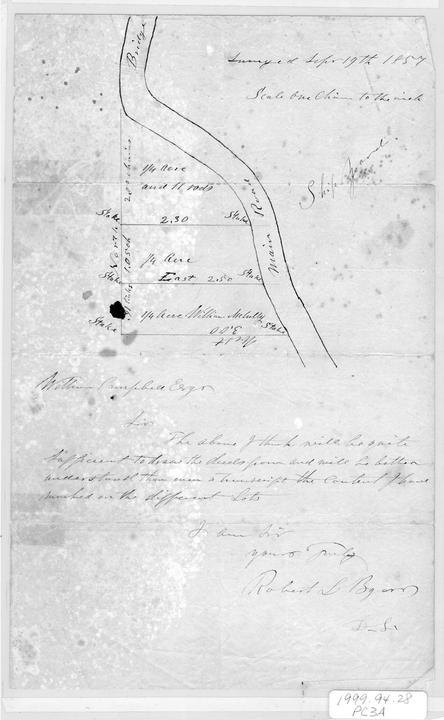 Bridge
Surveyed Sepr 19th 1857
Scale One Chain to the inch
Ship Yard
1/4 Acre
and 11 rods
Main Road
Stake 2.30 Stake
North
1.05 ch
1/4 Acre
Stake East 2.50 Stake
1/4 Acre William
Stake Stake
3.00
West
William Campbell Esqr
Sir
The above I think will be quite
sufficient to draw the deeds from and will be better
understood than even a the Content I have
marked on the different lots
I am Sir
yours Truly
Robert L Byers
D. S.
1999.94.28
PC3A